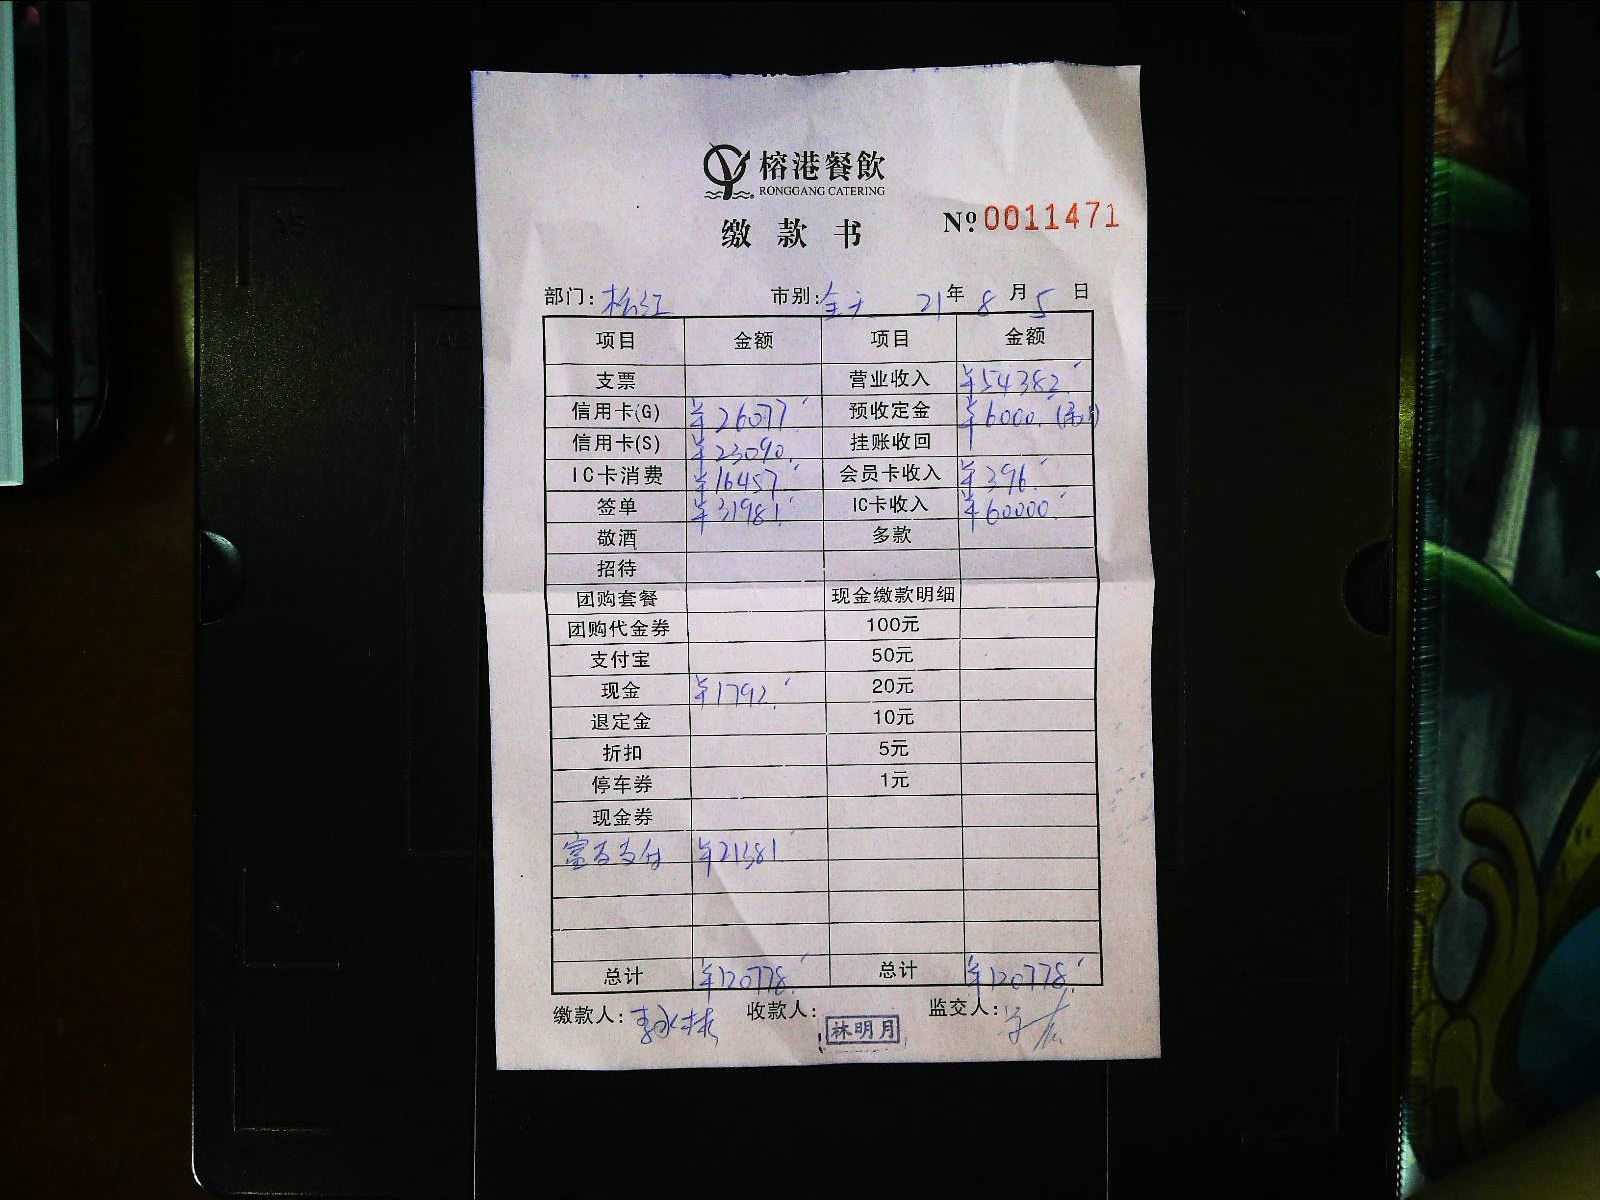 榕港餐飲
RONGGANG CATERING
缴款书
№0011471
部门:松江 市别:全天 21年8月5日
项目 金额 项目 金额
支票 营业收入 ¥54382.
信用卡(G) ¥26077. 预收定金 ¥6000.
信用卡(S) ¥23090. 挂账收回
IC卡消费 ¥16457. 会员卡收入 ¥396.
签单 ¥31981. IC卡收入 ¥60000.
敬酒 多款
招待
团购套餐 现金缴款明细
团购代金券 100元
支付宝 50元
现金 ¥1792. 20元
退定金 10元
折扣 5元
停车券 1元
现金券
富友支付 ¥21381.
总计 ¥120778. 总计 ¥120778.
缴款人: 收款人:林明月 监交人: